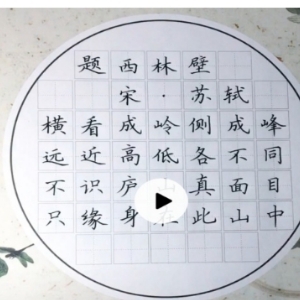 题西林壁
宋·苏轼
横看成岭侧成峰
远近高低各不同
不识庐山真面目
只缘身在此山中